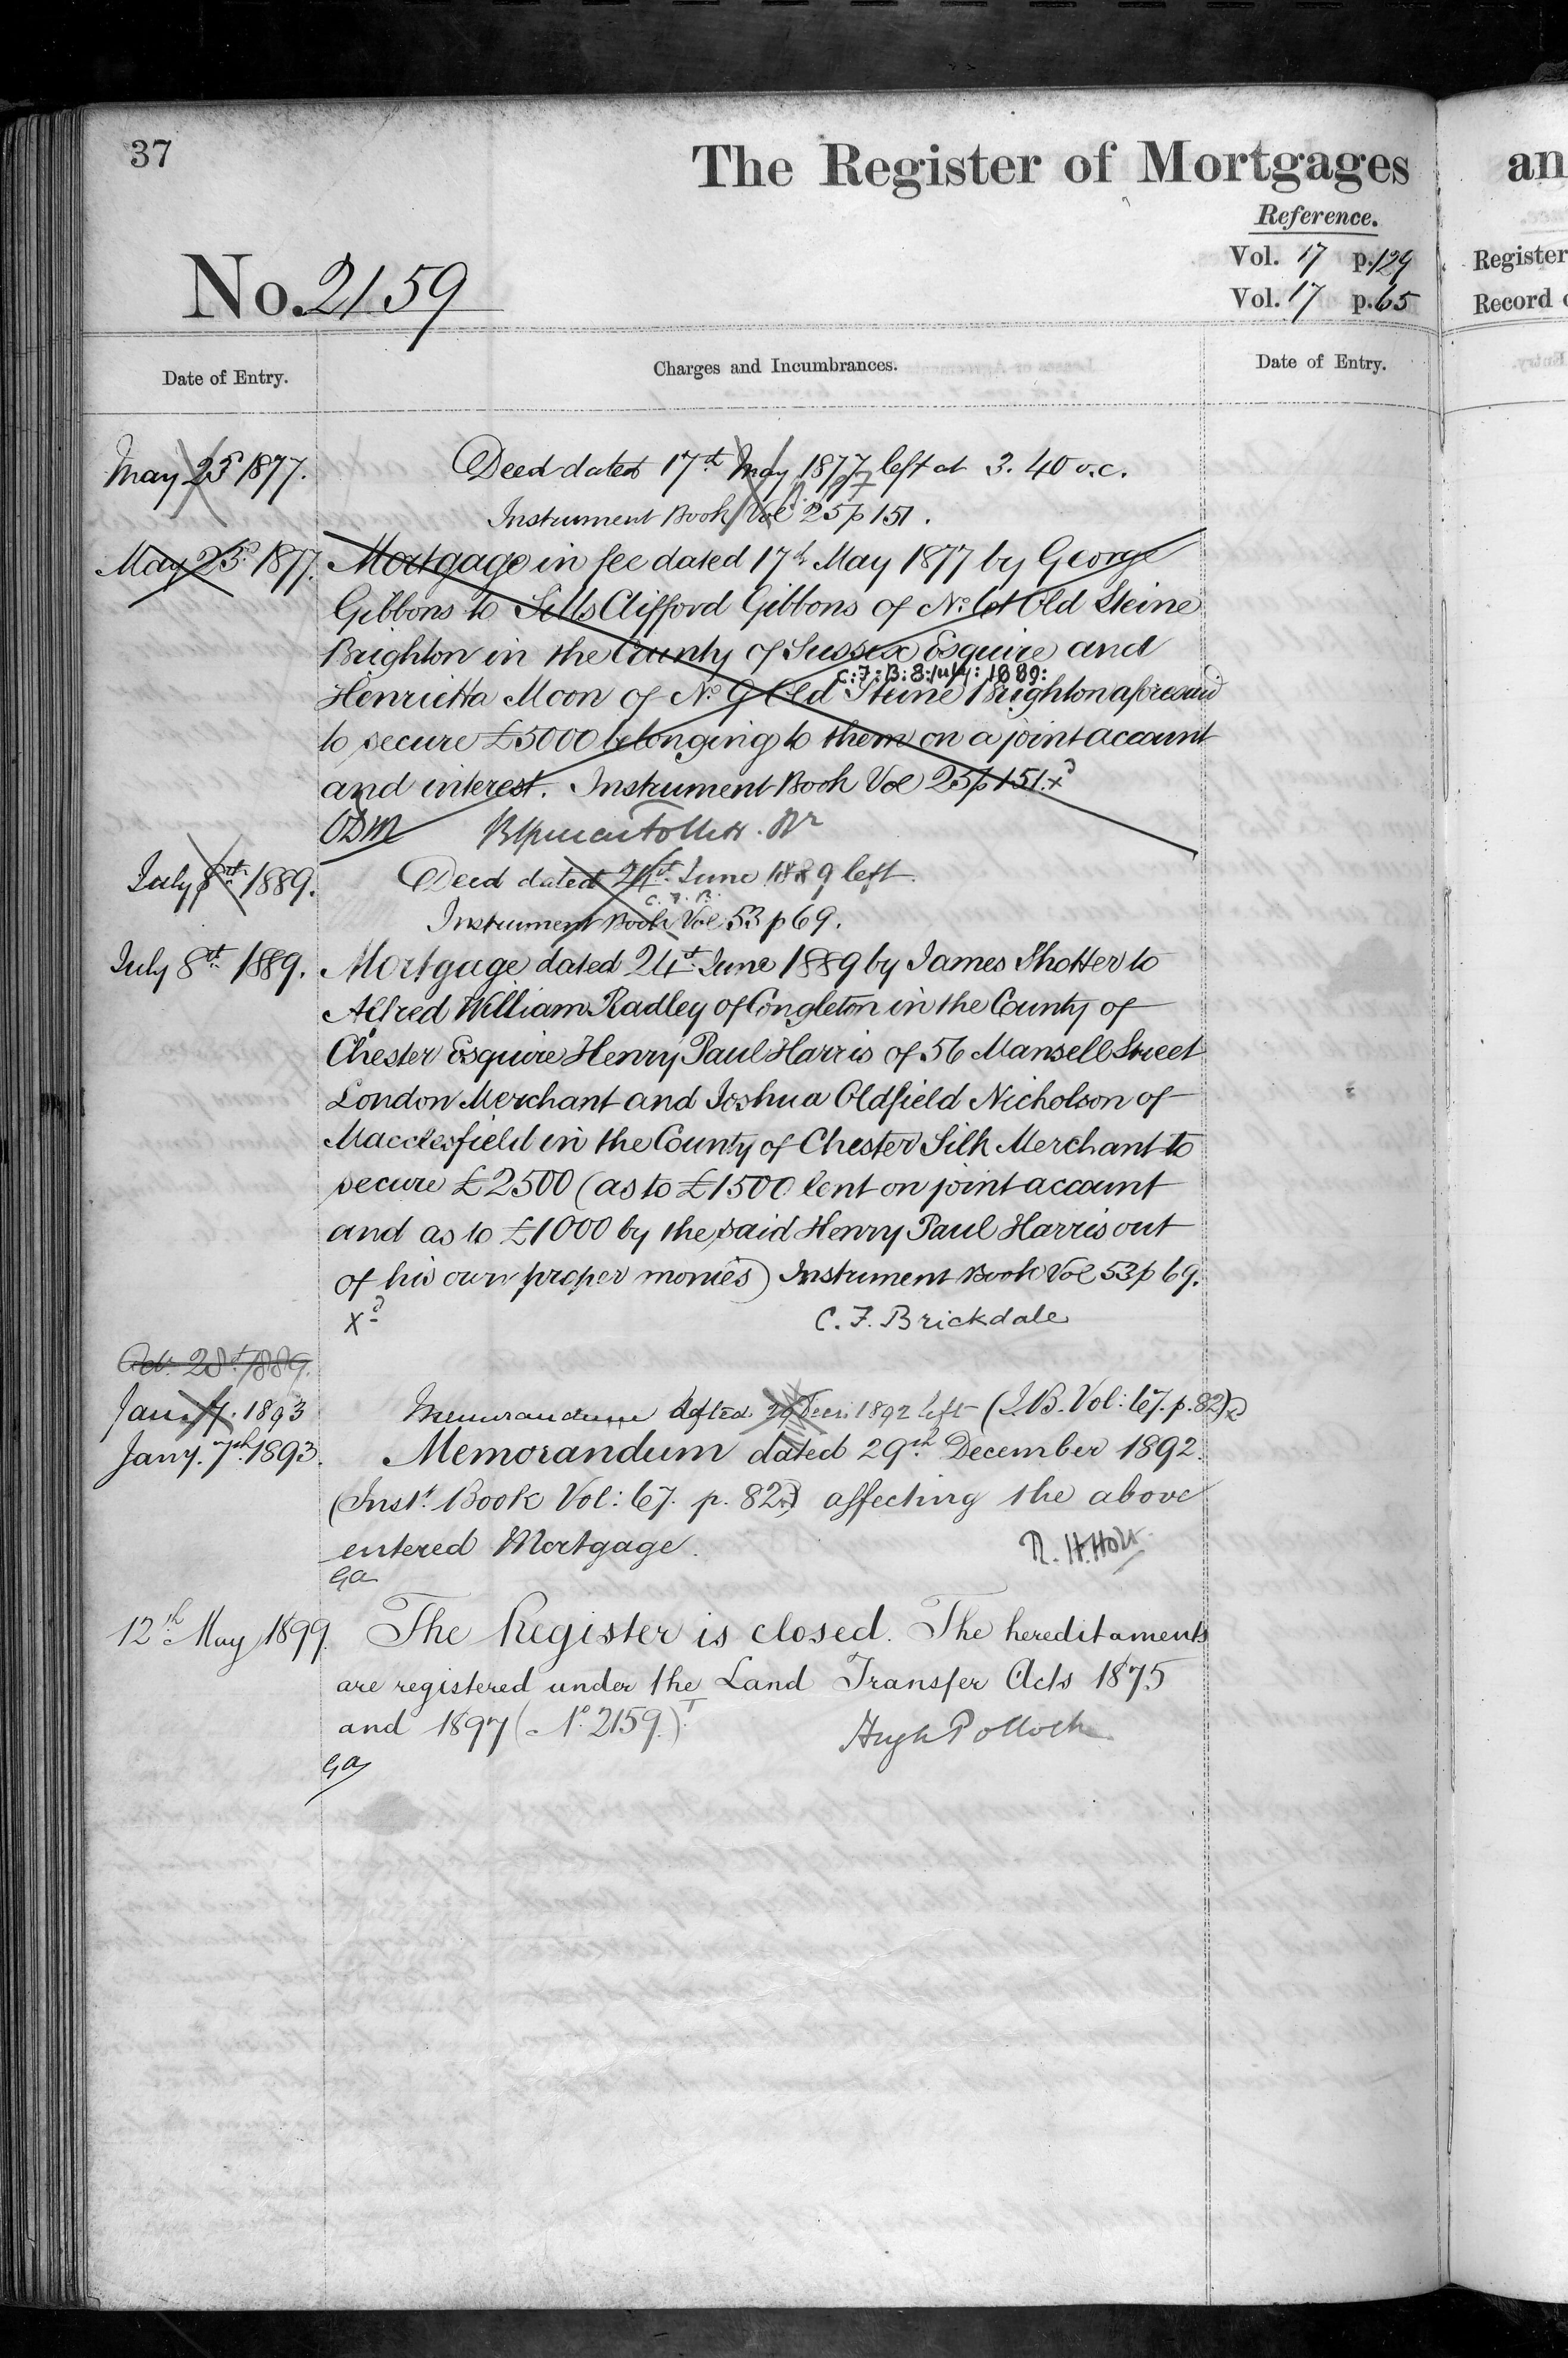 37
The Register of Mortgages
an
Reference.
Vol. 17 p. 129
Register
No. 2159
Vol. 17 p. 65
Record
Date of Entry.
Charges and Incumbrances.
Date of Entry.
May 25th 1877.
Deed dated 17th May 1877 left at 3.40 o.c.
Instrument Book Vol 25 p 151.
May 25th 1877.
Mortgage in fee dated 17th May 1877 by George
Gibbons to Sills Clifford Gibbons of No. 61 Old Steine
Brighton in the County of Sussex Esquire and
C:F:B:8:July:1889:
Henrietta Moon of No. 9 Old Steine Brighton aforesaid
to secure £5000 belonging to them on a joint account
and interest. Instrument Book Vol 25 p 151. xd
July 8th 1889.
Deed dated 24th June 1889 left
C.F.B.
Instrument Book Vol 53 p 69.
July 8th 1889.
Mortgage dated 24th June 1889 by James Shotter to
Alfred William Radley of Congleton in the County of
Chester Esquire Henry Paul Harris of 56 Mansell Street
London Merchant and Joshua Oldfield Nicholson of
Macclesfield in the County of Chester Silk Merchant to
secure £2500 (as to £1500 lent on joint account
and as to £1000 by the said Henry Paul Harris out
of his own proper monies) Instrument Book Vol 53 p 69.
xd
C. F. Brickdale
28th 1889.
Jan. 7. 1893
Memorandum dated 29 Decr. 1892 left (I.B. Vol: 67. p. 82)
Jany. 7th 1893.
Memorandum dated 29th December 1892.
(Inst. Book Vol: 67. p. 82) affecting the above
entered Mortgage.
R. H. Holt
GA
12th May 1899.
The Register is closed. The hereditaments
are registered under the Land Transfer Acts 1875
and 1897 (No. 2159.)
Hugh Pollock
GA